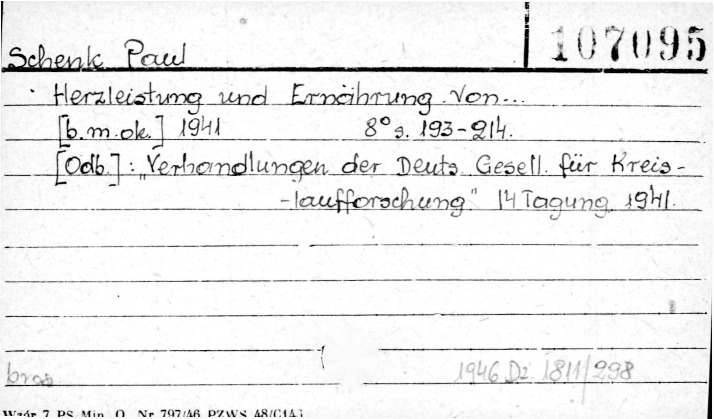 107095
Schenk Paul
Herzleistung und Ernährung. Von...
[b.m.ok.] 1941 8° s. 193-214.
[Odb.]: "Verhandlungen der Deuts. Gesell. für Kreis-
-laufforschung." 14 Tagung 1941.
bros
1946 Dz 1811/298
Wzór 7 PS Min. O. Nr 797/46 PZWS 48/C1A